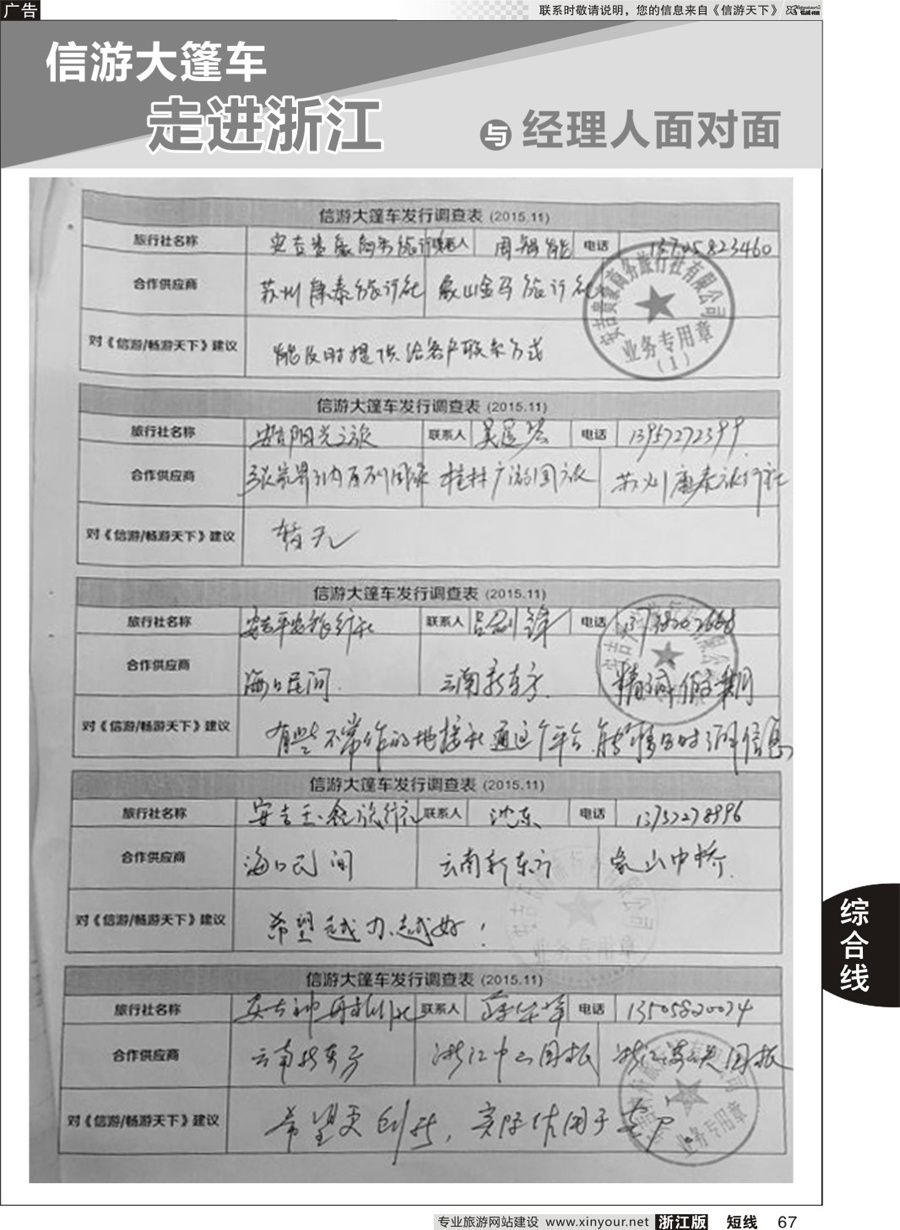 广告
联系时敬请说明，您的信息来自《信游天下》
信游大篷车
走进浙江
与 经理人面对面
信游大篷车发行调查表 (2015.11)
旅行社名称 联系人 电话
合作供应商 苏州康泰旅行社 象山金马旅行社
对《信游/畅游天下》建议 能及时提供给客户联系方式
安吉贵豪商务旅行社有限公司
业务专用章
(1)
信游大篷车发行调查表 (2015.11)
旅行社名称 安吉阳光之旅 联系人 电话 13957272399
合作供应商 桂林广游国旅 苏州康泰旅行社
对《信游/畅游天下》建议 暂无
信游大篷车发行调查表 (2015.11)
旅行社名称 安吉平安旅行社 联系人 电话
合作供应商 海口民间 云南新东方
对《信游/畅游天下》建议 有些不常作的地接社通过这个平台
信游大篷车发行调查表 (2015.11)
旅行社名称 联系人 沈东 电话 13757278996
合作供应商 海口民间 云南新东方 象山中桥
对《信游/畅游天下》建议 希望越办越好！
业务专用章
信游大篷车发行调查表 (2015.11)
旅行社名称 联系人 电话 13505820074
合作供应商 云南新东方 浙江中山国旅
对《信游/畅游天下》建议 希望更创新，实际作用于客户。
业务专用章
综合线
专业旅游网站建设 www.xinyour.net 浙江版 短线 67